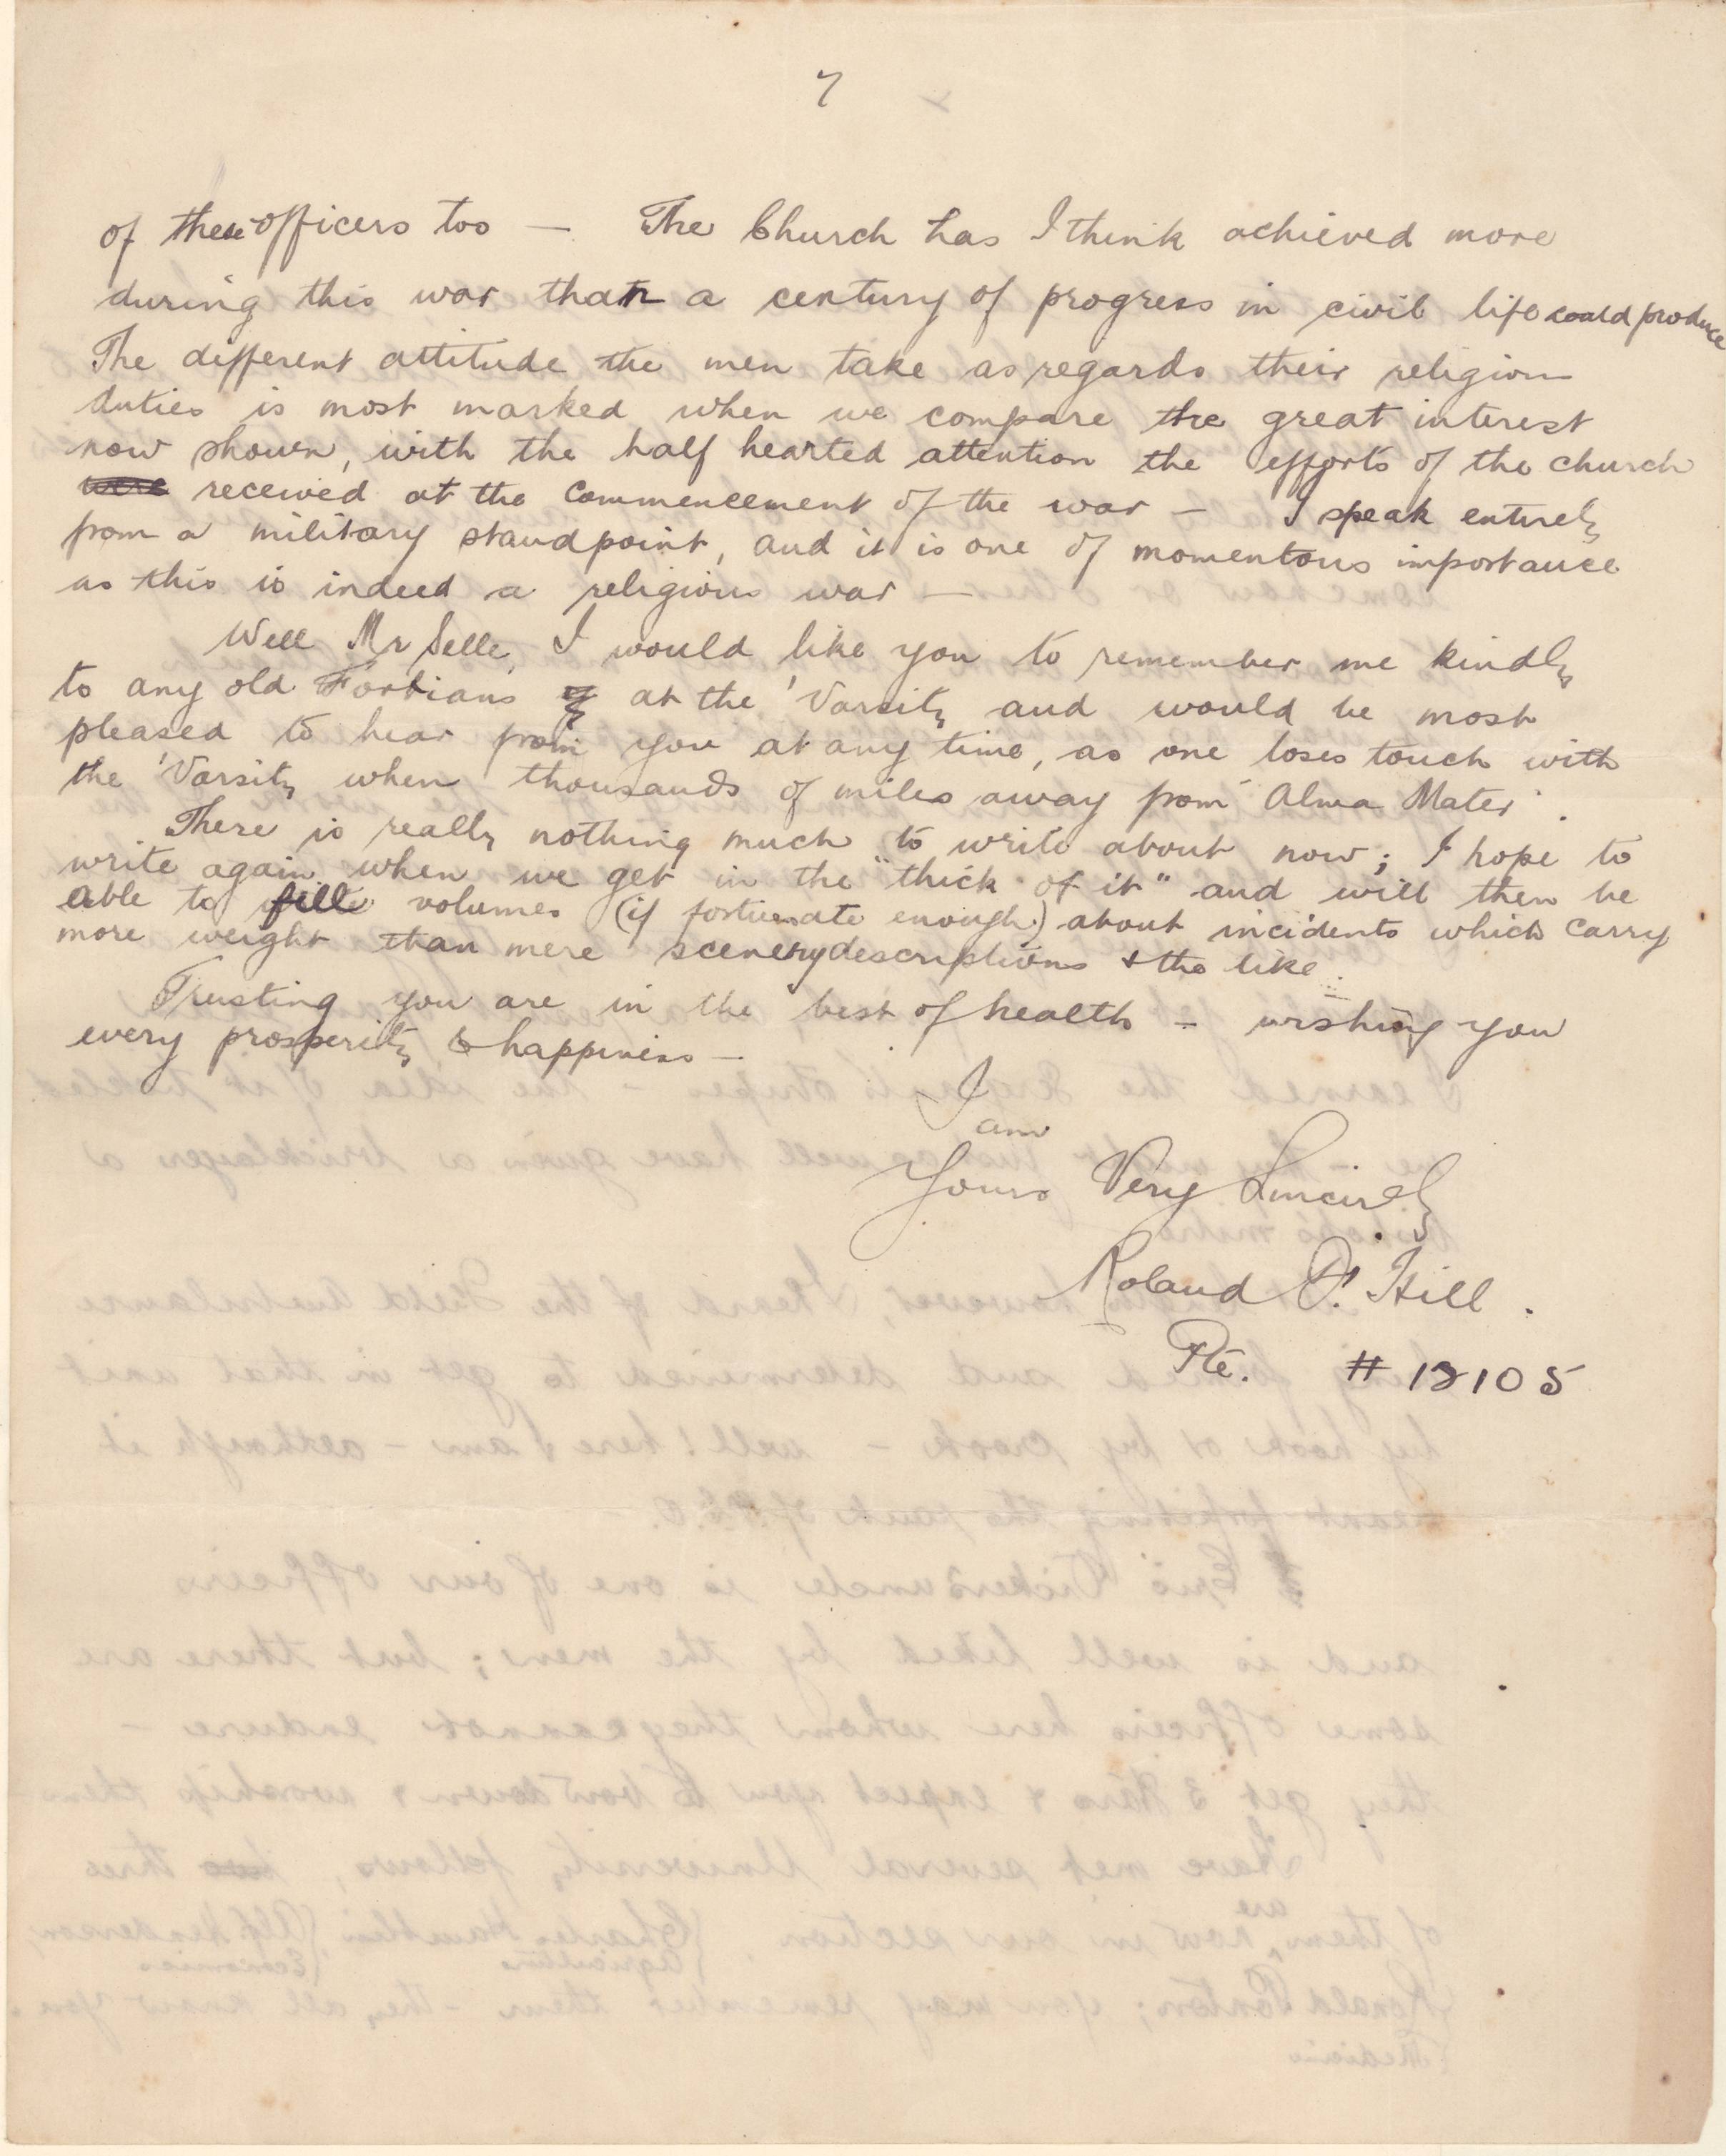 7
of these officers too — The Church has I think achieved more
during this war than a century of progress in civil life could produce
The different attitude the men take as regards their religious
duties is most marked when we compare the great interest
now shown, with the half hearted attention the efforts of the church
were received at the commencement of the war — I speak entirely
from a military standpoint, and it is one of momentous importance
as this is indeed a religious war —
Well Mr Selle, I would like you to remember me kindly
to any old Fortians at the 'Varsity and would be most
pleased to hear from you at any time, as one loses touch with
the 'Varsity when thousands of miles away from "Alma Mater".
There is really nothing much to write about now; I hope to
write again when we get in the "thick of it" and will then be
able to fill volumes (if fortunate enough) about incidents which carry
more weight than mere scenery descriptions & the like.
Trusting you are in the best of health — wishing you
every prosperity & happiness —
I
am
Yours Very Sincerely
Roland Hill.
Pte. # 13105